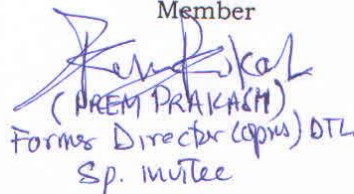 Member
(PREM PRAKASH)
Former Director (opns) DTL
Sp. invitee